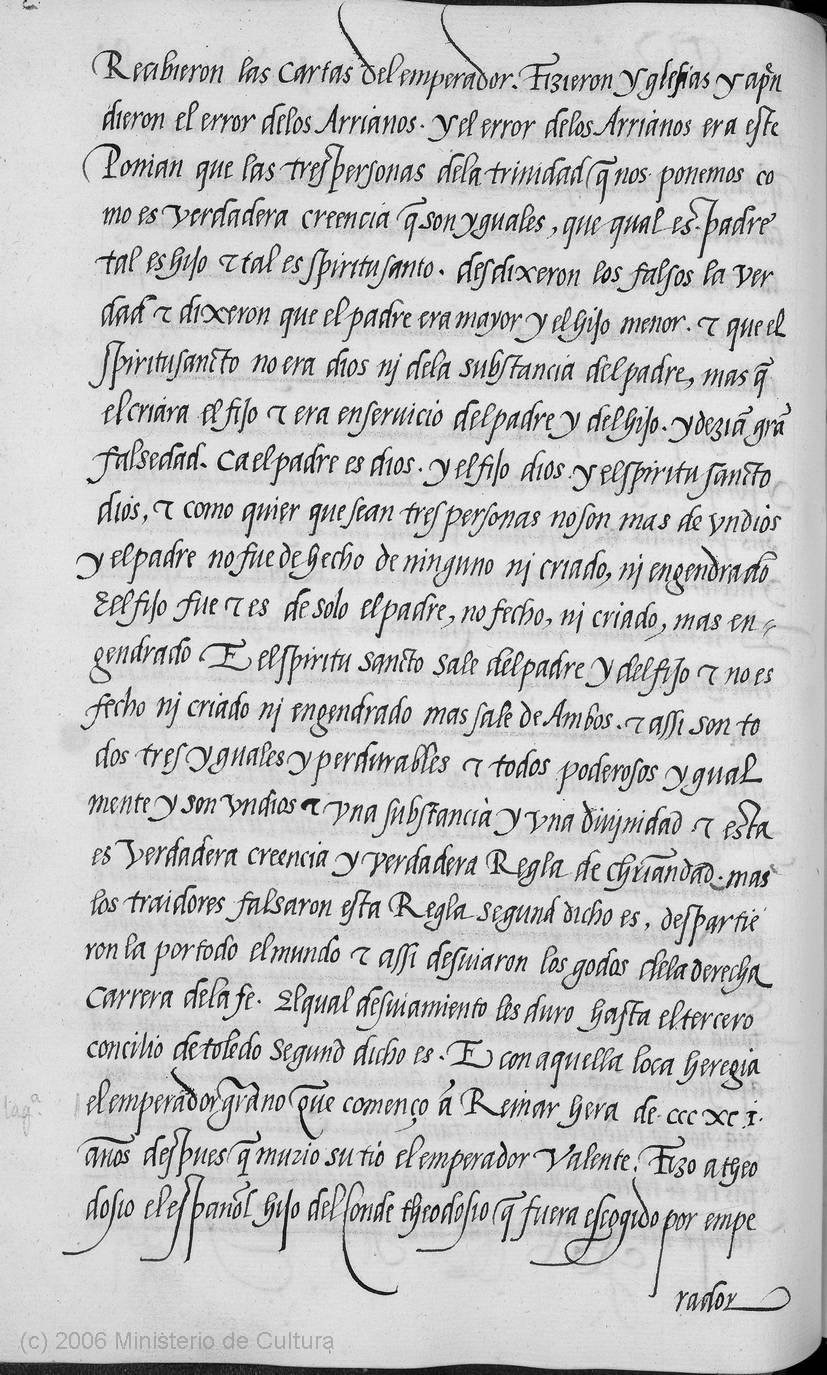 Recibieron las Cartas del emperador. Fizieron Yglesias y apñ
dieron el error delos Arrianos. y el error delos Arrianos era este
Ponian que las tres personas dela trinidad q̃ nos ponemos co
mo es verdadera creencia q̃ son yguales, que qual es padre
tal es hijo ⁊ tal es spiritusanto. desdixeron los falsos la ver
dad ⁊ dixeron que el padre era mayor y el hijo menor. ⁊ que el
spiritusancto no era dios nj dela substancia del padre, mas q̃
el criara el fijo ⁊ era enseruicio del padre y del hijo. y dezia͂ gra͂
falsedad. Ca el padre es dios. y el fijo dios. y el spiritu sancto
dios, ⁊ como quier que sean tres personas no son mas de vn dios
y el padre no fue de hecho de ninguno nj criado, nj engendrado
El fijo fue ⁊ es de solo el padre, no fecho, nj criado, mas en-
gendrado. E el spiritu sancto sale del padre y del fijo ⁊ no es
fecho nj criado nj engendrado mas sale de Ambos. ⁊ assi son to
dos tres yguales y perdurables ⁊ todos poderosos ygual
mente y son vn dios ⁊ vna substancia y vna diujnidad ⁊ esta
es verdadera creencia y verdadera Regla de chr̃iandad. mas
los traidores falsaron esta Regla segund dicho es, despartie
ron la por todo el mundo ⁊ assi desuiaron los godos dela derecha
Carrera dela fe. El qual desuiamiento les duro hasta el tercero
concilio de toledo segund dicho es. E con aquella loca heregia
el emperador gradno que començo a͂ Reinar hera de ccc xc j.
an͂os despues q̃ murio su tio el emperador Valente. Fizo a theo
dosio el español hijo del conde theodosio q̃ fuera escogido por empe
rador
(c) 2006 Ministerio de Cultura